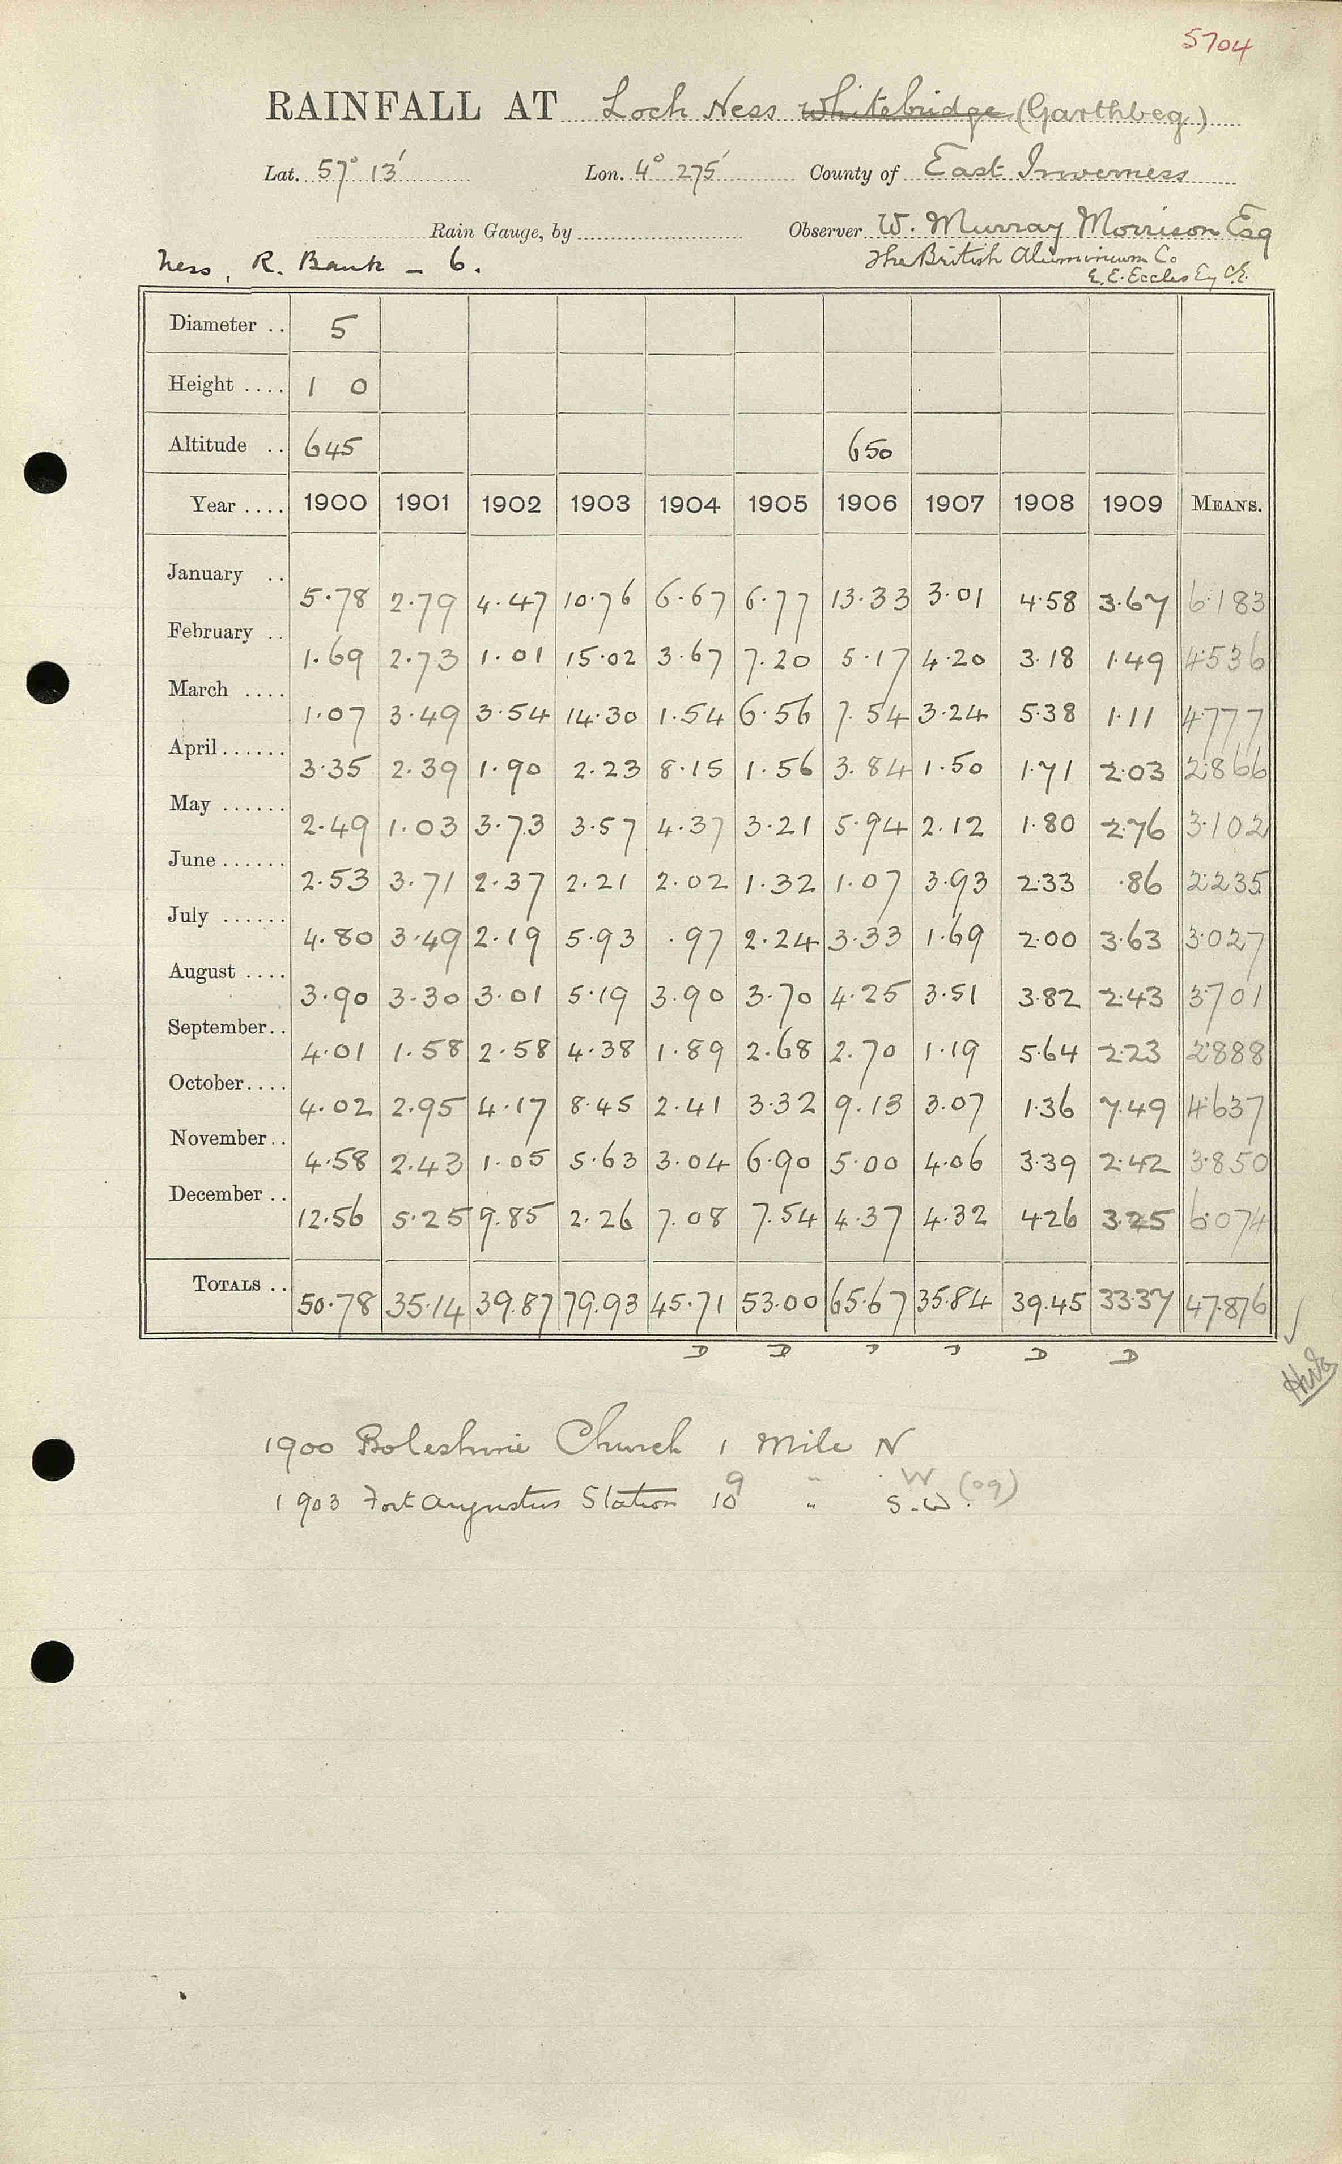 5704
RAINFALL AT Loch Ness Whitebridge (Garthbeg)
Lat. 57° 13' Lon. 4° 275' County of East Inverness
Rain Gauge, by Observer W. Murray Morrison Esq
Ness, R. Bank - 6. The British Aluminium Co
E. E. Eccles Esq C.E.
Diameter .. 5
Height .... 1 0
Altitude .. 645 650
Year .... 1900 1901 1902 1903 1904 1905 1906 1907 1908 1909 MEANS.
January .. 5.78 2.79 4.47 10.76 6.67 6.77 13.33 3.01 4.58 3.67 6.183
February .. 1.69 2.73 1.01 15.02 3.67 7.20 5.17 4.20 3.18 1.49 4.536
March .... 1.07 3.49 3.54 14.30 1.54 6.56 7.54 3.24 5.38 1.11 4.777
April...... 3.35 2.39 1.90 2.23 8.15 1.56 3.84 1.50 1.71 2.03 2.866
May ...... 2.49 1.03 3.73 3.57 4.37 3.21 5.94 2.12 1.80 2.76 3.102
June...... 2.53 3.71 2.37 2.21 2.02 1.32 1.07 3.93 2.33 .86 2.235
July ...... 4.80 3.49 2.19 5.93 .97 2.24 3.33 1.69 2.00 3.63 3.027
August .... 3.90 3.30 3.01 5.19 3.90 3.70 4.25 3.51 3.82 2.43 3.701
September.. 4.01 1.58 2.58 4.38 1.89 2.68 2.70 1.19 5.64 2.23 2.888
October.... 4.02 2.95 4.17 8.45 2.41 3.32 9.13 3.07 1.36 7.49 4.637
November.. 4.58 2.43 1.05 5.63 3.04 6.90 5.00 4.06 3.39 2.42 3.850
December .. 12.56 5.25 9.85 2.26 7.08 7.54 4.37 4.32 4.26 3.25 6.074
TOTALS .. 50.78 35.14 39.87 79.93 45.71 53.00 65.67 35.84 39.45 33.37 47.876
D D D D D D
1900 Boleskine Church 1 Mile N
9 W (09)
1903 Fort Augustus Station 10 " S.W.